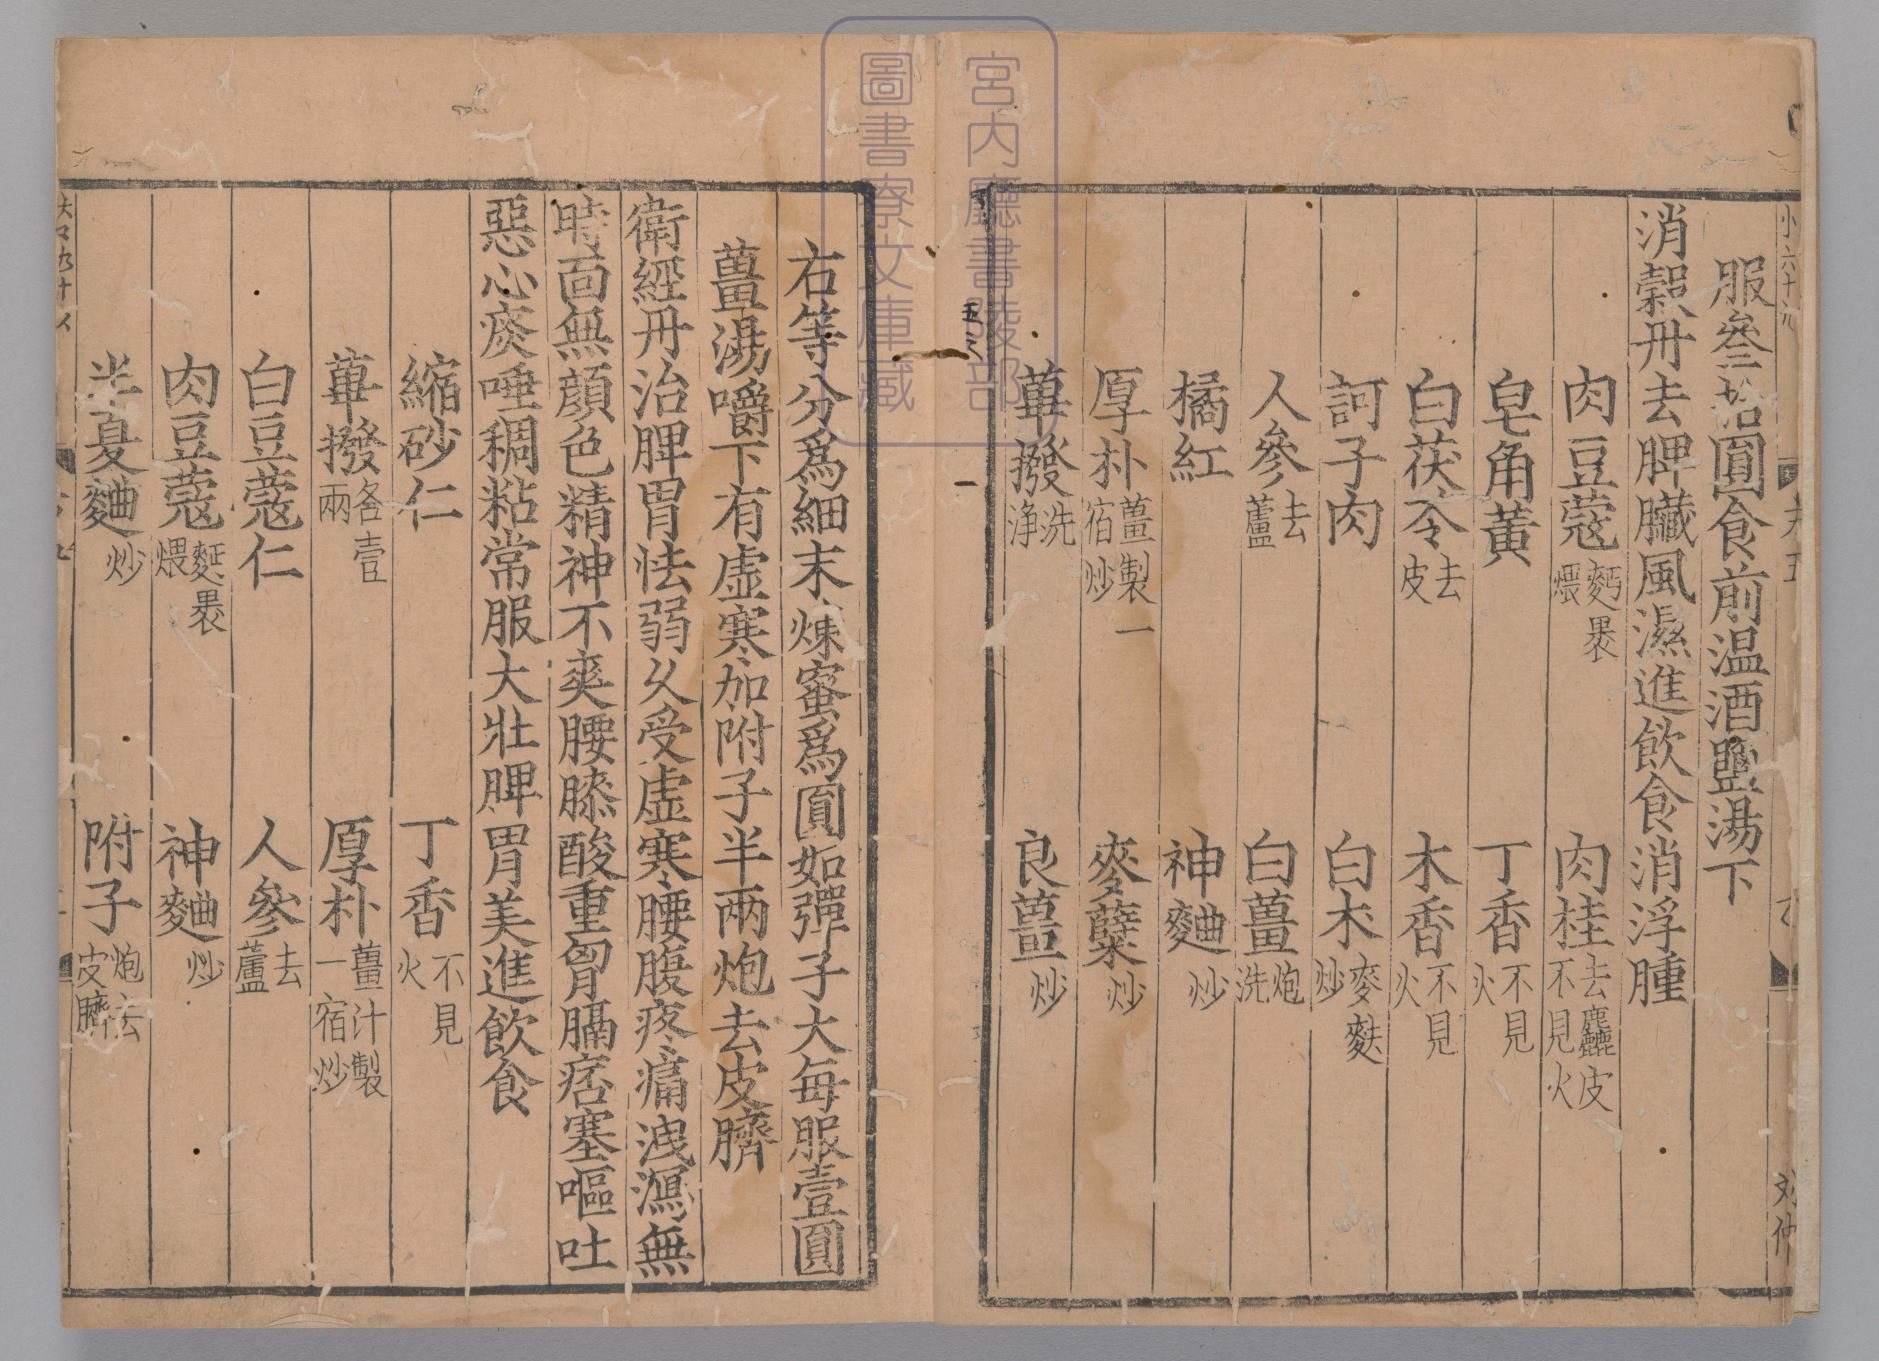 服叄拾圓食前温酒鹽湯下
消穀丹去脾臟風濕進飲食消浮腫
肉豆蔻麪裹煨 肉桂去麤皮不見火
皂角黃 丁香不見火
白茯苓去皮 木香不見火
訶子肉 白术麥麩炒
人參去蘆 白薑炮洗
橘紅 神麯炒
厚朴薑製一宿炒 麥蘖炒
蓽撥洗净 良薑炒
右等分爲細末煉蜜爲圓如彈子大每服壹圓
薑湯嚼下有虛寒加附子半兩炮去皮臍
衛經丹治脾胃怯弱久受虛寒腰腹疼痛洩瀉無
時面無顏色精神不爽腰膝酸重胷膈痞塞嘔吐
惡心痰唾稠粘常服大壯脾胃美進飲食
縮砂仁 丁香不見火
蓽撥各壹兩 厚朴薑汁製一宿炒
白豆蔻仁 人參去蘆
肉豆蔻麪裹煨 神麯炒
半夏麯炒 附子炮去皮臍
宮内廳書陵部
圖書寮文庫藏